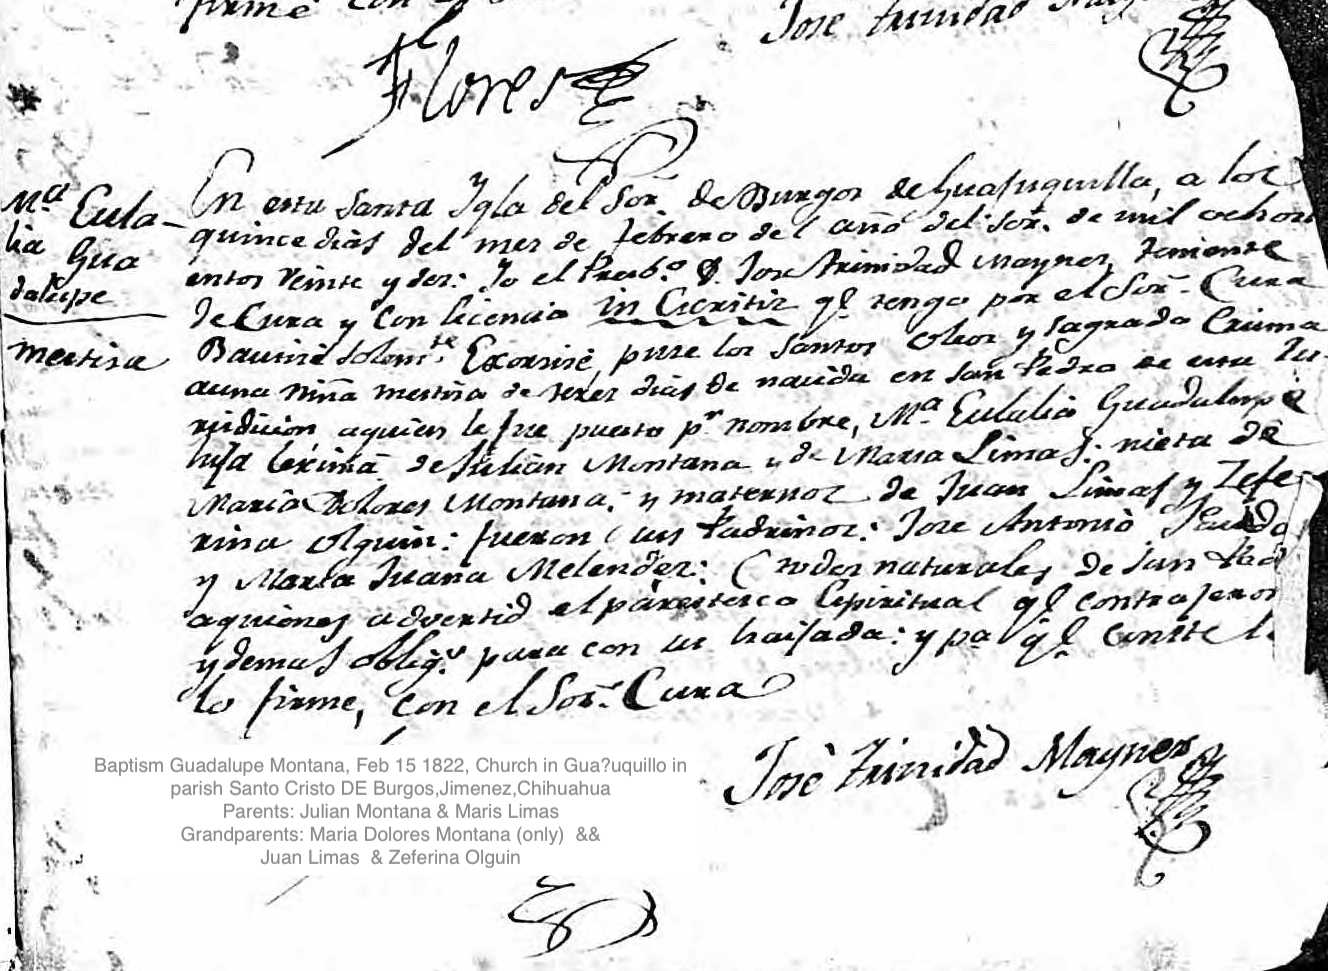 firmé con el
José trinidad Mayner
Flores
Mª Eula-
lia Gua
dalupe
mestisa
En esta Santa Ygla del Sor. de Burgos de Guajuquilla, a los
quince dias del mes de febrero del año del Sor. de mil ochosi
entos veinte y dos: Yo el Presb.º D. Jose trinidad Mayner, teniente
de Cura y con licencia in Scritiz q.e tengo por el Sor. Cura
Bautisé solem.te Exorsisé, puse los santos oleos y sagrada Crisma
auna niña mestisa de tres dias de nacida en San Pedro de esta Ju-
risdicion, aquien le fue puesto p.r nombre, M.a Eulalia Guadalupe
hija lexima de Julian Montana y de Maria Limas: nieta de
Maria Dolores Montana; y maternos de Juan Limas y Zefe
rina olguin: fueron sus Padrinos: Jose Antonio
y Maria Juana Melendez: (todos naturales de San Ped
aquienes advertid el parentesco Espiritual q.e contrajeron
y demas oblig.s para con su haijada: y pa. q.e conste
lo firme, con el Sor. Cura
José trinidad Mayner
Baptism Guadalupe Montana, Feb 15 1822, Church in Gua?uquillo in
parish Santo Cristo DE Burgos,Jimenez,Chihuahua
Parents: Julian Montana & Maris Limas
Grandparents: Maria Dolores Montana (only) &&
Juan Limas & Zeferina Olguin